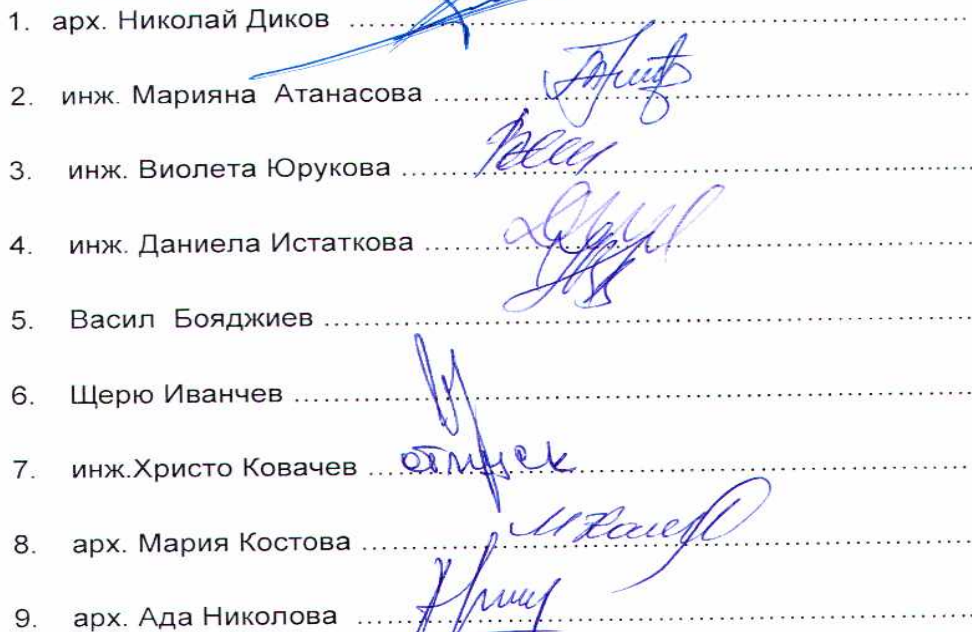 1. арх. Николай Диков ....................
2. инж. Марияна Атанасова ....................
3. инж. Виолета Юрукова ....................
4. инж. Даниела Истаткова ....................
5. Васил Бояджиев ....................
6. Щерю Иванчев ....................
7. инж.Христо Ковачев .... отпуск ....................
8. арх. Мария Костова ....................
9. арх. Ада Николова ....................